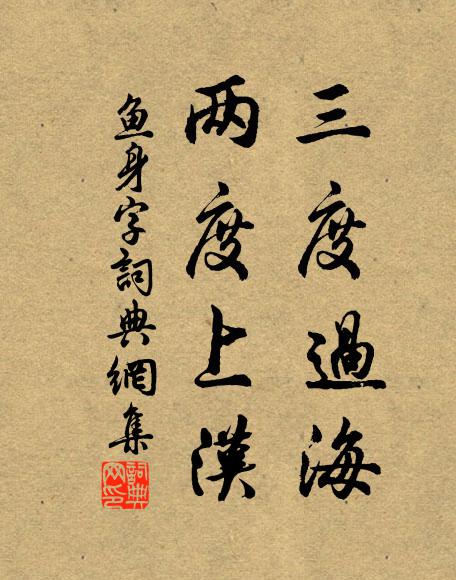 三度過海
两度上漢
魚身字詞典網集
詞典
网印